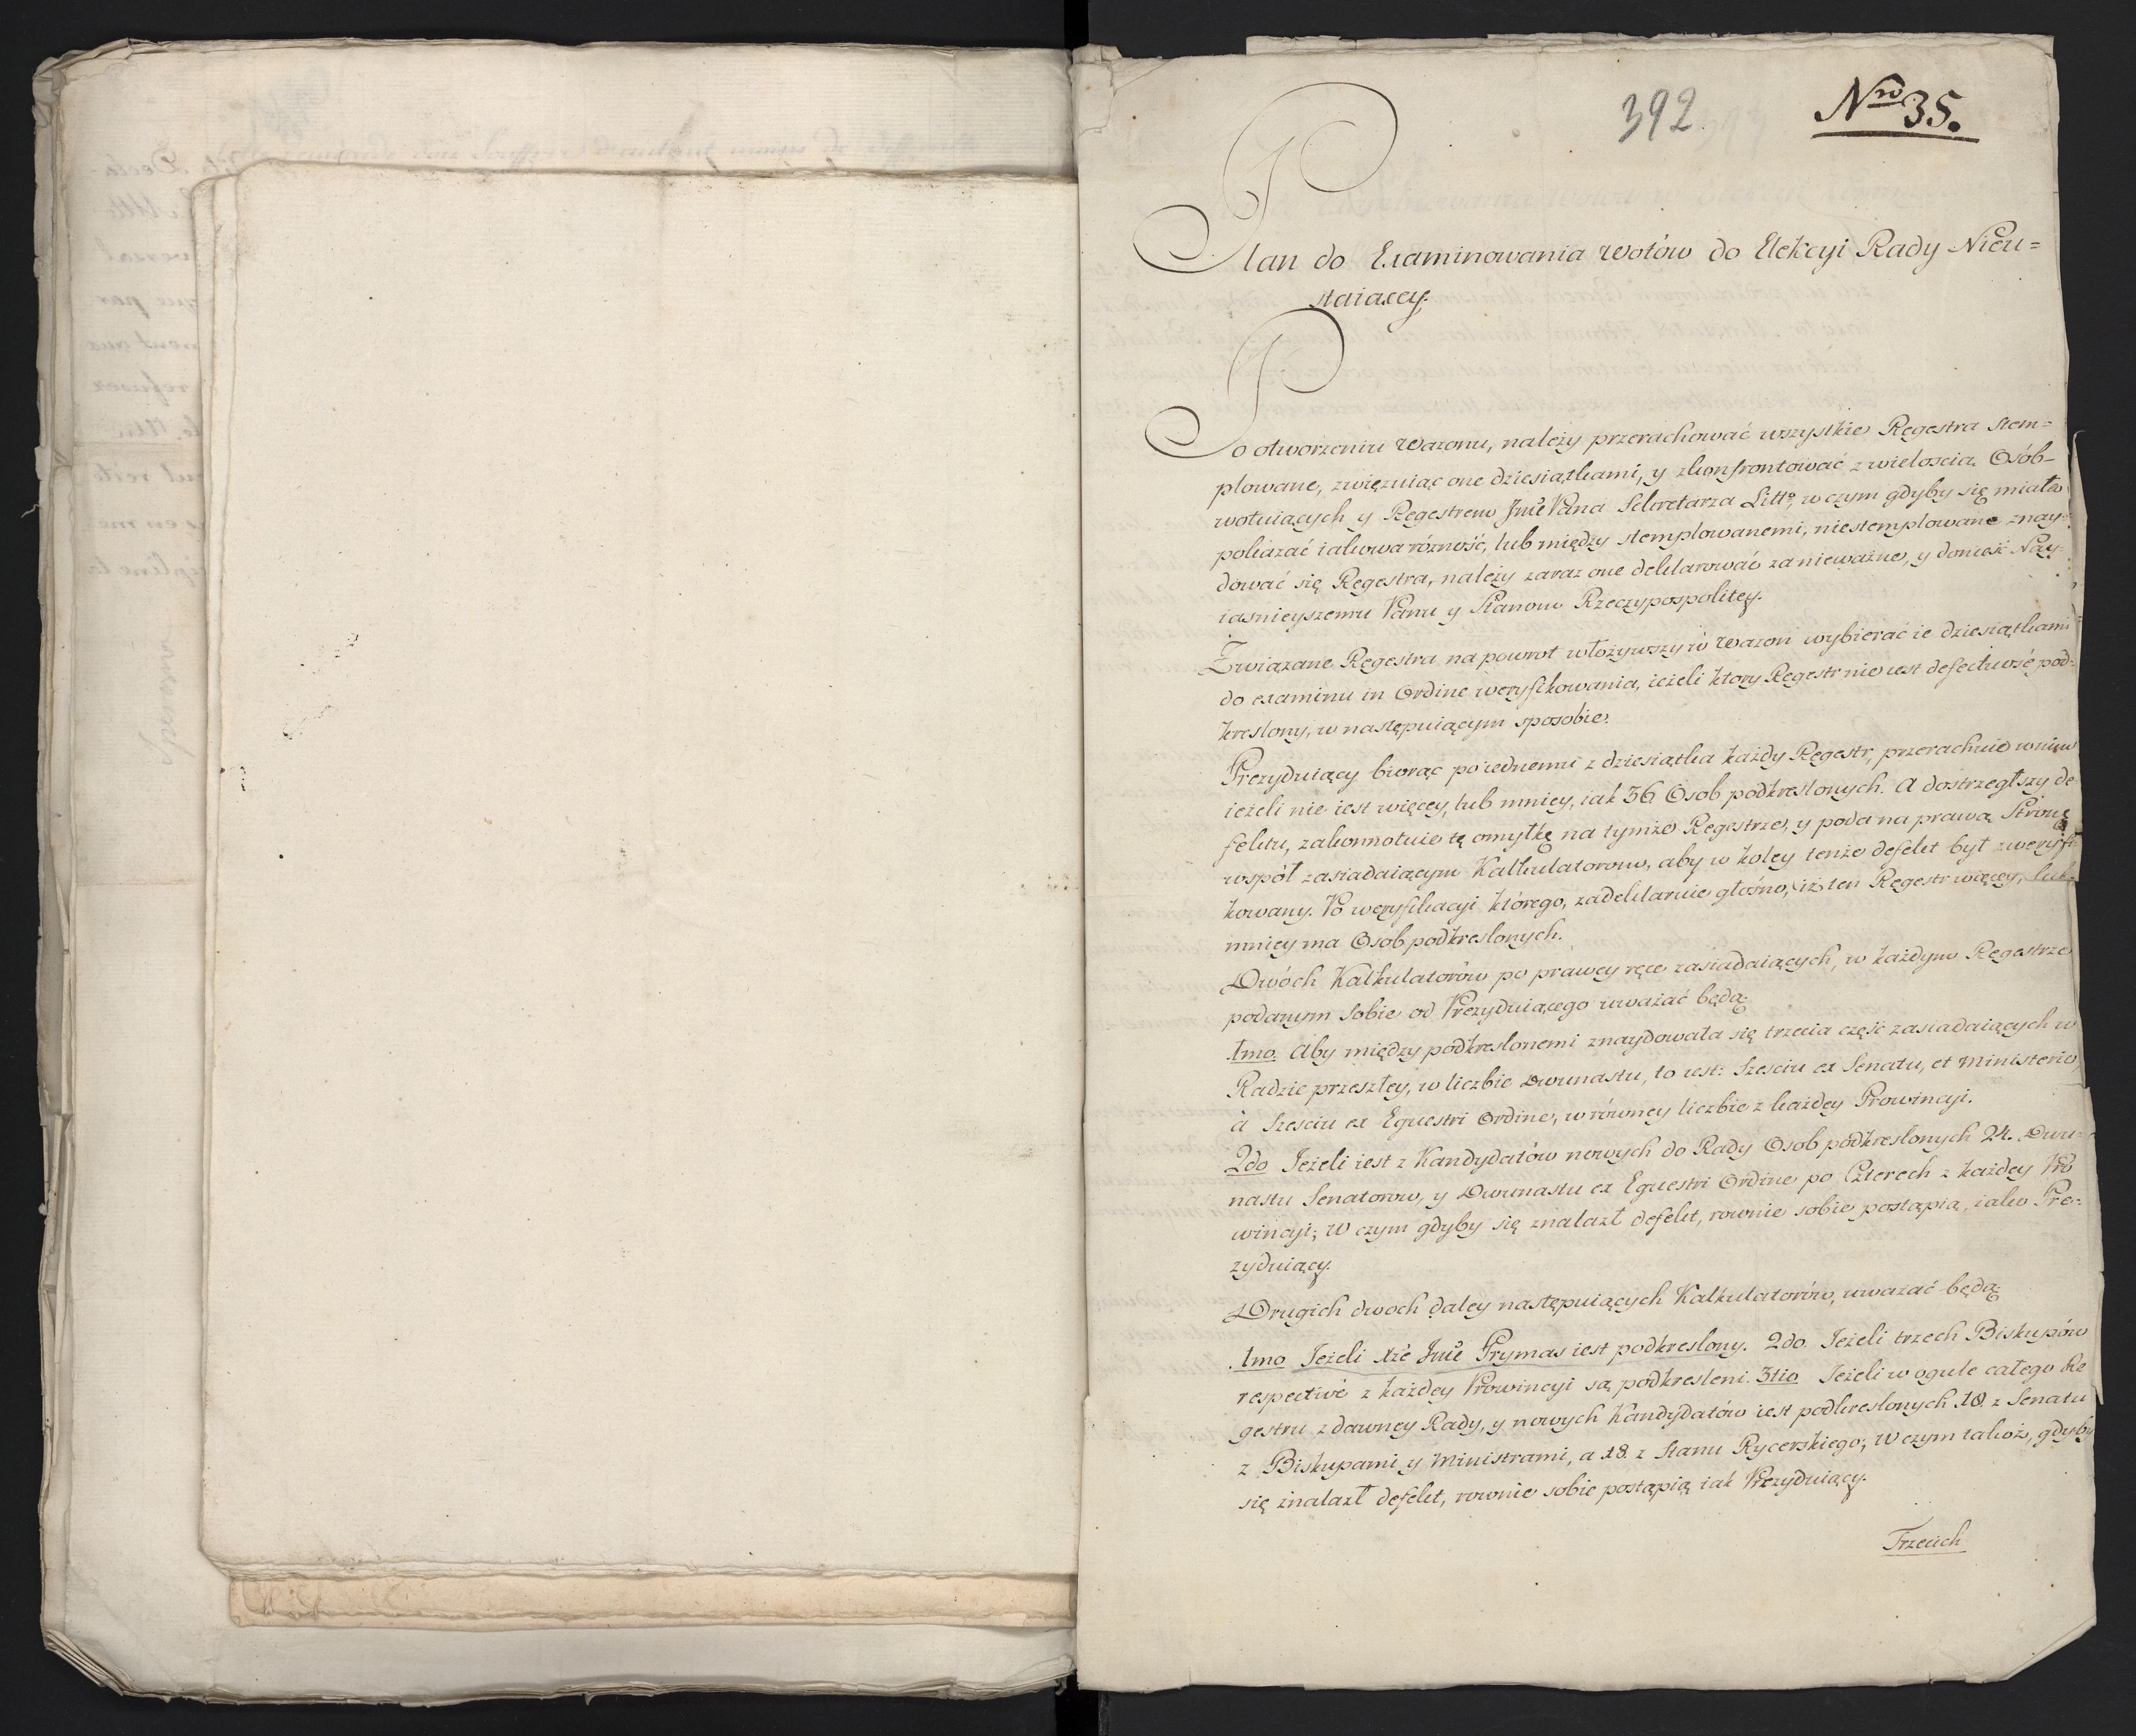 392
Nro 35.
Plan do Examinowania Wotów do Elekcyi Rady Nieu=
staiącey.
Po otworzeniu Wazonu, należy przerachować wszystkie Regestra stem=
plowane, związuiąc one dziesiątkami, y zkonfrontować z wieloscią Osób
wotuiących y Regestrem Jmć Pana Sekretarza Litto, w czym gdyby się miała
pokazać iakowa różność, lub między stemplowanemi, niestemplowane znay=
dować się Regestra, należy zaraz one deklarować za nieważne, y donieść Nay=
iasnieyszemu Panu y Stanom Rzeczypospolitey.
Związane Regestra na powrot włożywszy w Wazon wybierać ie dziesiątkami
do examinu in Ordine weryfikowania, ieżeli ktory Regestr nie iest defectuosè pod=
kreslony, w następuiącym sposobie.
Prezyduiący biorąc poiednemu z dziesiątka każdy Regestr, przerachuie w nim
ieżeli nie iest więcey, lub mniey, iak 36 Osob podkreslonych. A dostrzegłszy de=
fektu, zakonnotuie tę omyłkę na tymże Regestrze, y poda na prawą Stronę
wspoł zasiadaiącym Kalkulatorom, aby w koley tenże defekt był zweryfi=
kowany. Po weryfikacyi którego, zadeklaruie głośno, iż ten Regestr więcey, lub
mniey ma Osob podkreslonych.
Dwóch Kalkulatorów po prawey ręce zasiadaiących, w każdym Regestrze
podanym sobie od Prezyduiącego uważać będą.
1mo. Aby między podkreslonemi znaydowała się trzecia część zasiadaiących w
Radzie przeszłey, w liczbie Dwunastu, to iest: Szesciu ex Senatu, et Ministerio,
á Szesciu ex Equestri Ordine, w równey liczbie z każdey Prowincyi.
2do Jeżeli iest z Kandydatów nowych do Rady Osob podkreslonych 24. Dwu=
nastu Senatorow, y Dwunastu ex Equestri Ordine po Czterech z każdey Pro
wincyi; W czym gdyby się znalazł defekt, rownie sobie postąpią, iako Pre=
zyduiący.
Drugich dwoch daley następuiących Kalkulatorów, uważać będą.
1mo Jeżeli Xże Jmć Prymas iest podkreslony. 2do. Jeżeli trzech Biskupów
respectivè z każdey Prowincyi są podkresleni. 3tio Jeżeli w ogule całego Re
gestru z dawney Rady, y nowych Kandydatów iest podkreslonych 18. z Senatu
z Biskupami y Ministrami, a 18. z Stanu Rycerskiego; W czym takoż, gdyby
się znalazł defekt, rownie sobie postąpią iak Prezyduiący.
Trzecich